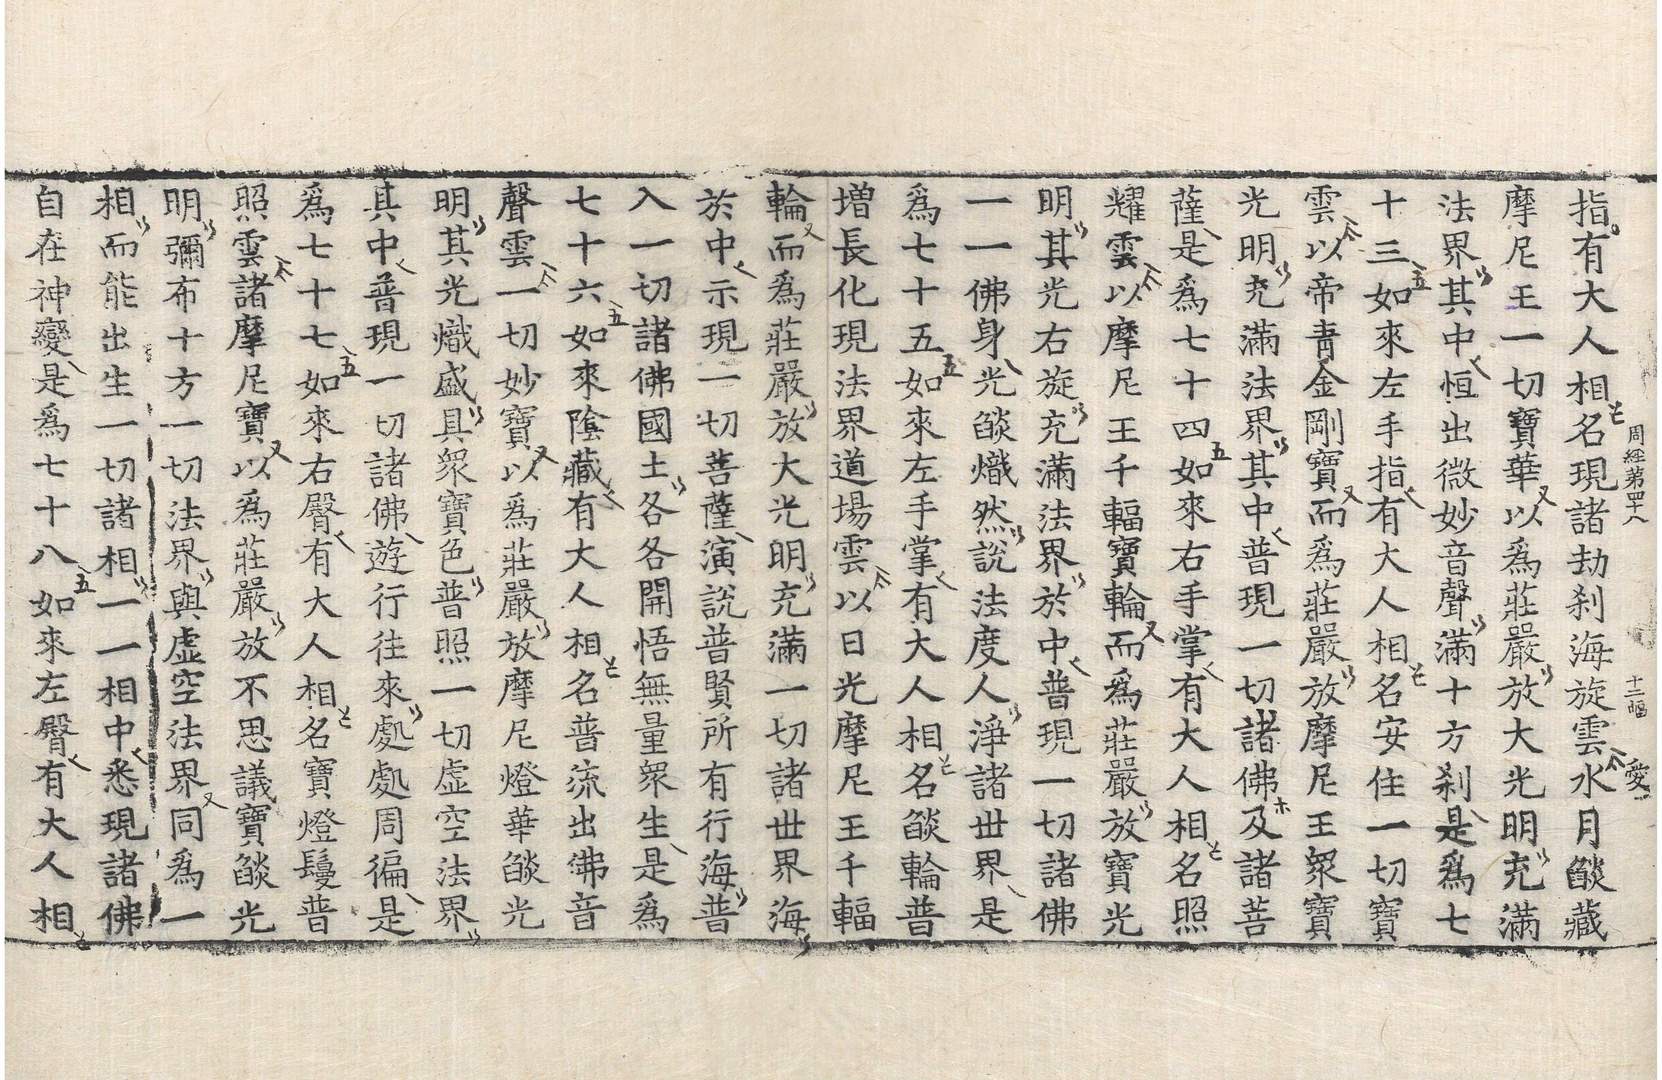 指有大人相名現諸劫刹海旋雲水月𦦨藏
周経第四十八 十二幅 愛
摩尼王一切寶華以爲莊嚴放大光明充滿
法界其中恒出微妙音聲滿十方刹是爲七
十三如來左手指有大人相名安住一切寶
雲以帝青金剛寶而爲莊嚴放摩尼王衆寶
光明充滿法界其中普現一切諸佛及諸菩
薩是爲七十四如來右手掌有大人相名照
耀雲以摩尼王千輻寶輪而爲莊嚴放寶光
明其光右旋充滿法界於中普現一切諸佛
一一佛身光𦦨熾然說法度人淨諸世界是
爲七十五如來左手掌有大人相名𦦨輪普
增長化現法界道場雲以日光摩尼王千輻
輪而爲莊嚴放大光明充滿一切諸世界海
於中示現一切菩薩演說普賢所有行海普
入一切諸佛國土各各開悟無量衆生是爲
七十六如來陰藏有大人相名普流出佛音
聲雲一切妙寶以爲莊嚴放摩尼燈華𦦨光
明其光熾盛具衆寶色普照一切虚空法界
其中普現一切諸佛遊行往來處處周徧是
爲七十七如來右臀有大人相名寶燈鬘普
照雲諸摩尼寶以爲莊嚴放不思議寶𦦨光
明彌布十方一切法界與虚空法界同爲一
相而能出生一切諸相一一相中悉現諸佛
自在神變是爲七十八如來左臀有大人相